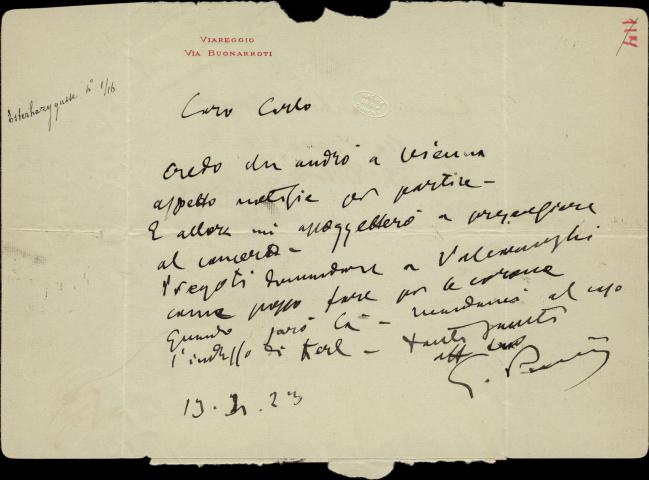 VIAREGGIO
VIA BUONARROTI
Esterhazygasse No 1/16
Caro Carlo
credo che andrò a Vienna
aspetto notizie per partire –
E allora mi assoggetterò a presenziare
al concerto –
Pregoti domandare a
come posso fare per le corone
quando sarò là – mandami al caso
l'indirizzo di Kerl – tanti saluti
aff tuo
G. Puccini
13. 23